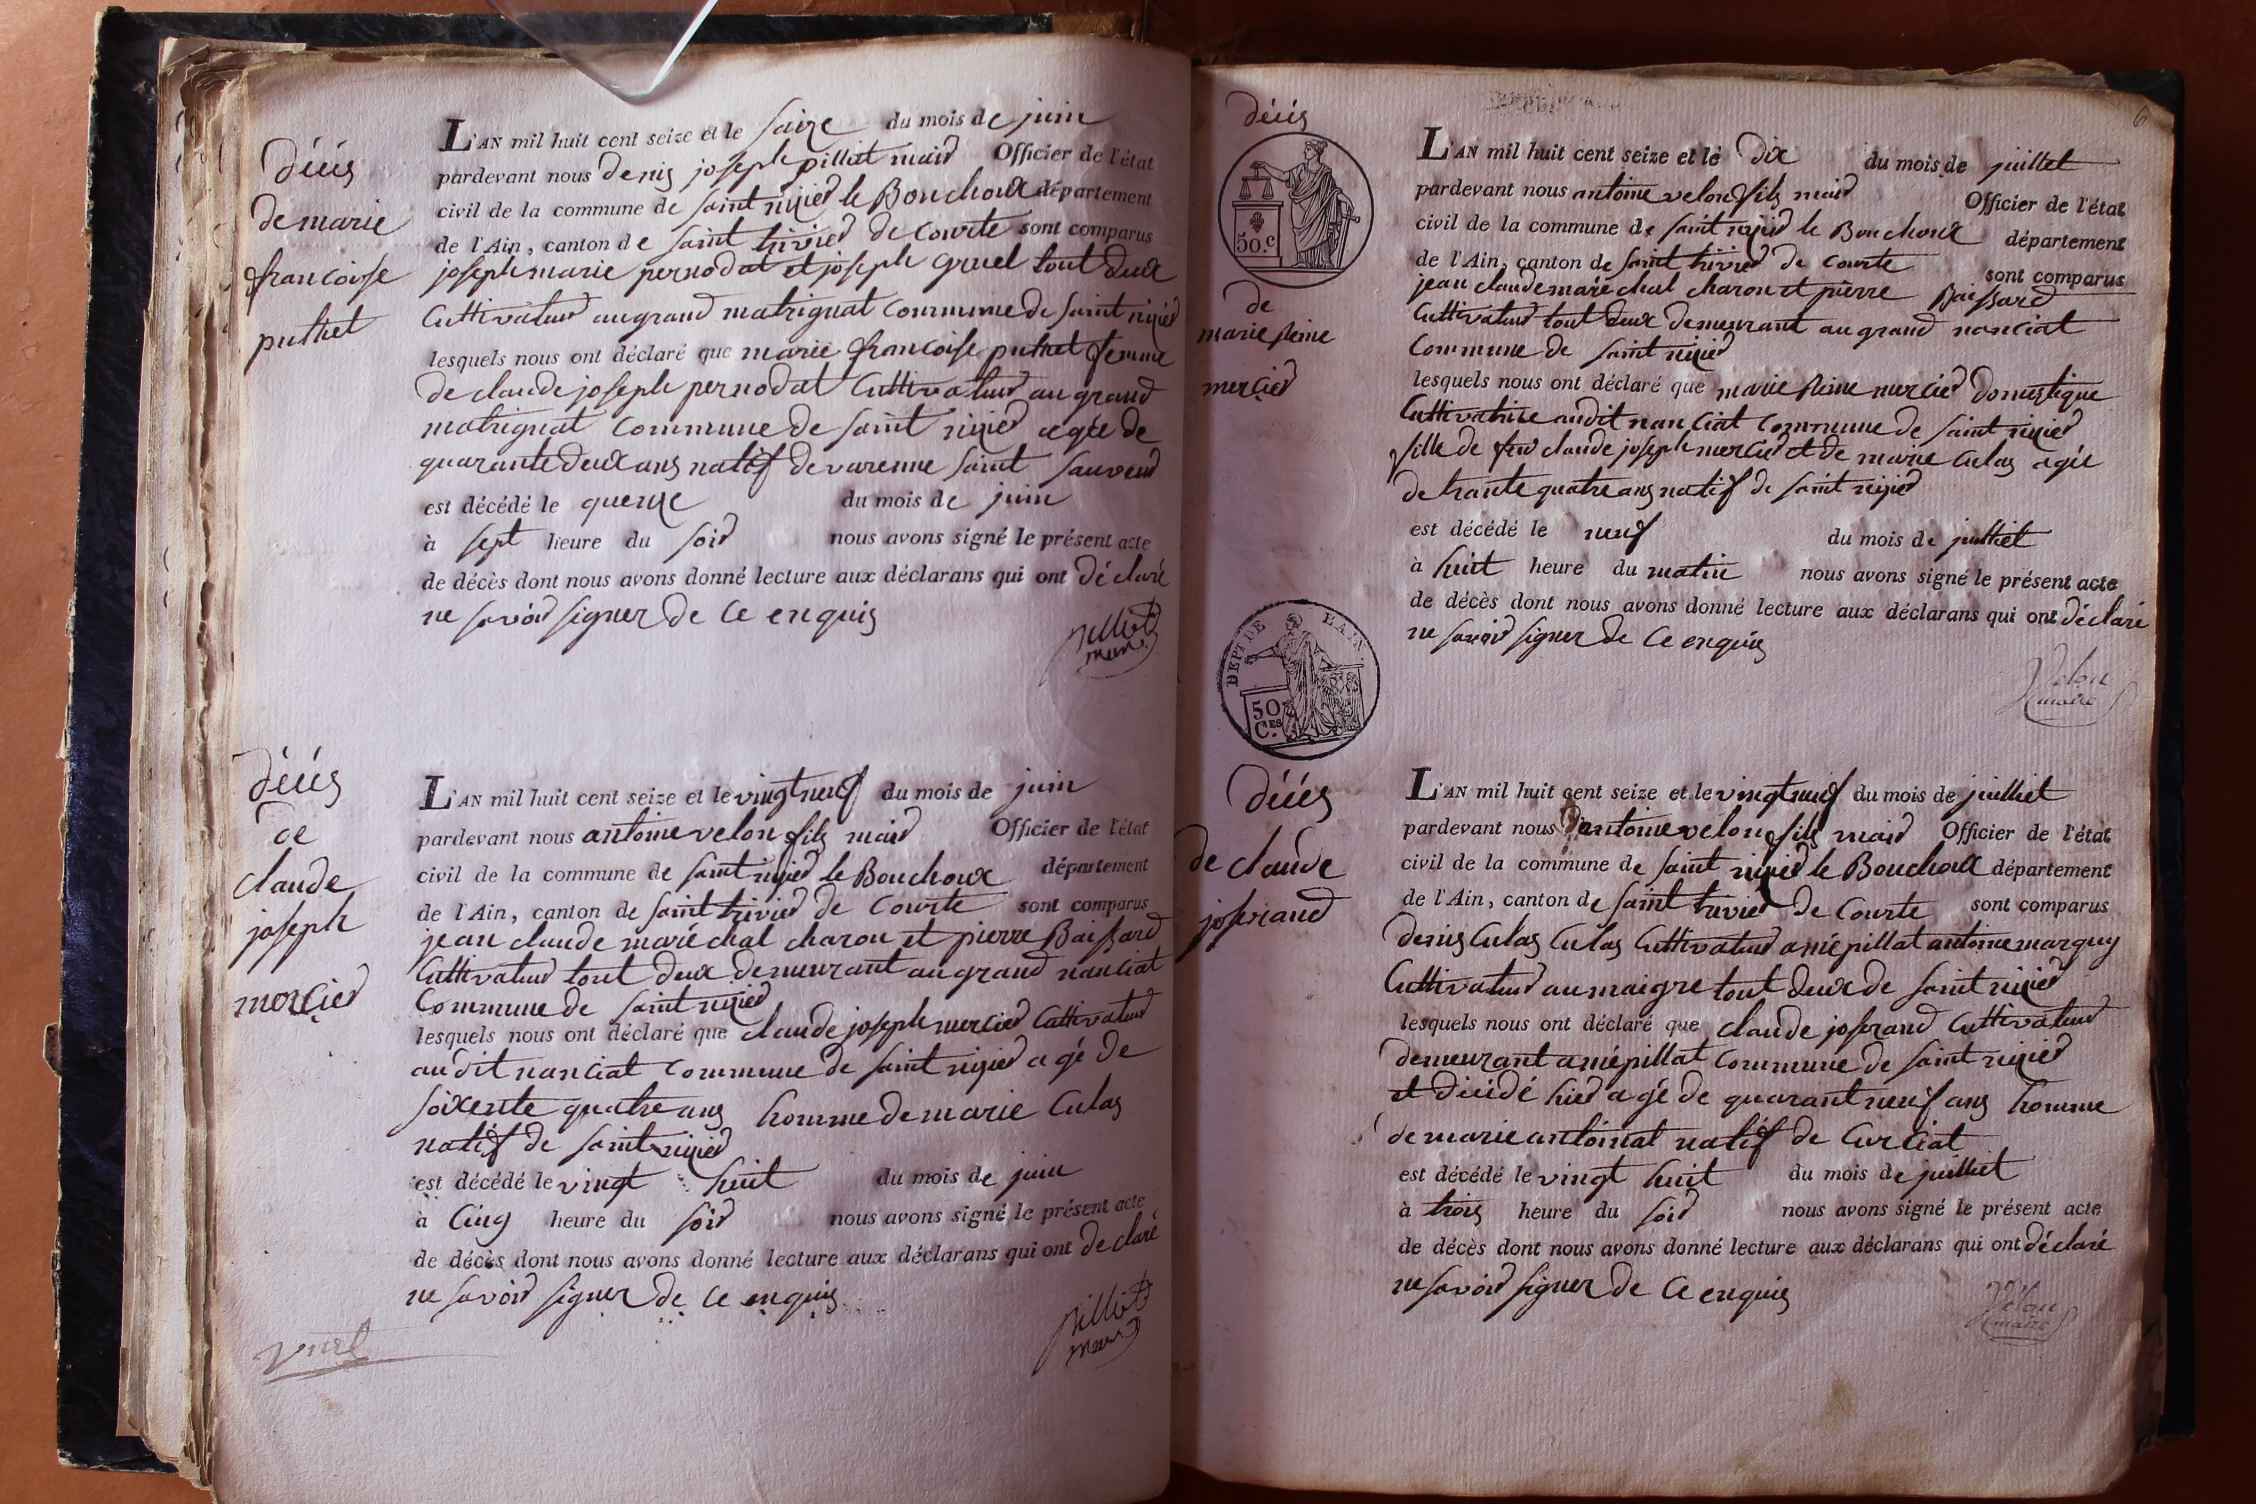 décés
de marie
francoise
puthet
L'AN mil huit cent seize et le saize du mois de juin
pardevant nous denis joseph pilliot maire Officier de l'état
civil de la commune de saint nizier le Bouchoux département
de l'Ain, canton de saint trivier de Courte sont comparus
joseph marie pernodat et joseph gruel tout deux
Cultivateur au grand matrignat Commune de saint nizier
lesquels nous ont déclaré que marie francoise puthet femme
de claude joseph pernodat Cultivateur au grand
matrignat Commune de saint nizier agée de
quarante deux ans natif de varenne saint sauveur
est décédé le quenze du mois de juin
à sept heure du soir nous avons signé le présent acte
de décès dont nous avons donné lecture aux déclarans qui ont déclaré
ne savoir signer de Ce enquis
pilliot
maire
décés
de
claude
joseph
mercier
L'AN mil huit cent seize et le vingt neuf du mois de juin
pardevant nous antoine velon fils maire Officier de l'état
civil de la commune de saint nizier le Bouchoux département
de l'Ain, canton de saint trivier de Courte sont comparus
jean claude maréchal charon et pierre Baissard
Cultivateur tout deux demeurant au grand nanciat
Commune de saint nizier
lesquels nous ont déclaré que claude joseph mercier Cultivateur
audit nanciat Commune de saint nizier agé de
soixente quatre ans homme de marie Culas
natif de saint nizier
est décédé le vingt huit du mois de juin
à Cinq heure du soir nous avons signé le présent acte
de décès dont nous avons donné lecture aux déclarans qui ont declaré
ne savoir signer de Ce enquis
pilliot
maire
6
décés
50.c
de
marie Reine
mercier
L'AN mil huit cent seize et le dix du mois de juillet
pardevant nous antoine velon fils maire Officier de l'état
civil de la commune de saint nizier le Bouchoux département
de l'Ain, canton de saint trivier de Courte sont comparus
jean claude maréchal charon et pierre Baissard
Cultivateur tout deux demeurant au grand nanciat
Commune de saint nizier
lesquels nous ont déclaré que marie Reine mercier domestique
Cultivatrice audit nanciat Commune de saint nizier
fille de feu claude joseph mercier et de marie Culas agée
de trante quatre ans natif de saint nizier
est décédé le neuf du mois de juilliet
à huit heure du matin nous avons signé le présent acte
de décès dont nous avons donné lecture aux déclarans qui ont déclaré
ne savoir signer de Ce enquis
Velon
maire
DEPT DE L'AIN
50
C.ES
décés
de claude
joserand
L'AN mil huit cent seize et le vingt neuf du mois de juilliet
pardevant nous antoine velon fils maire Officier de l'état
civil de la commune de saint nizier le Bouchoux département
de l'Ain, canton de saint trivier de Courte sont comparus
denis Culas Culas Cultivateur a mépillat antoine marquy
Cultivateur au maigre tout deux de saint nizier
lesquels nous ont déclaré que claude joserand Cultivateur
demeurant a mépillat Commune de saint nizier
et décédé hier agé de quarant neuf ans homme
de marie antoinat natif de Curciat
est décédé le vingt huit du mois de juilliet
à trois heure du soir nous avons signé le présent acte
de décès dont nous avons donné lecture aux déclarans qui ont déclaré
ne savoir signer de Ce enquis
Velon
maire